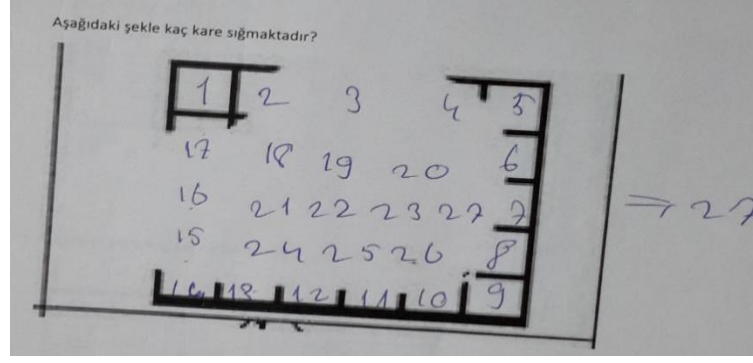 Aşağıdaki şekle kaç kare sığmaktadır?
1 2 3 4 5
17 18 19 20 6
16 21 22 23 27 7 ⇒ 27
15 24 25 26 8
14 13 12 11 10 9